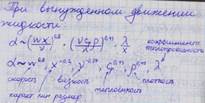 При вынужденном движении
жидкости
α ~ (wx/ν)^0,8 · (νcρ/λ)^0,4 · λ/x коэффициент теплопроводности
α ~ w^0,8, x^-0,2, ν^-0,4, c^0,4, ρ^0,4, λ^0,6
скорость вязкость плотность
характ. лин. размер теплоёмкость